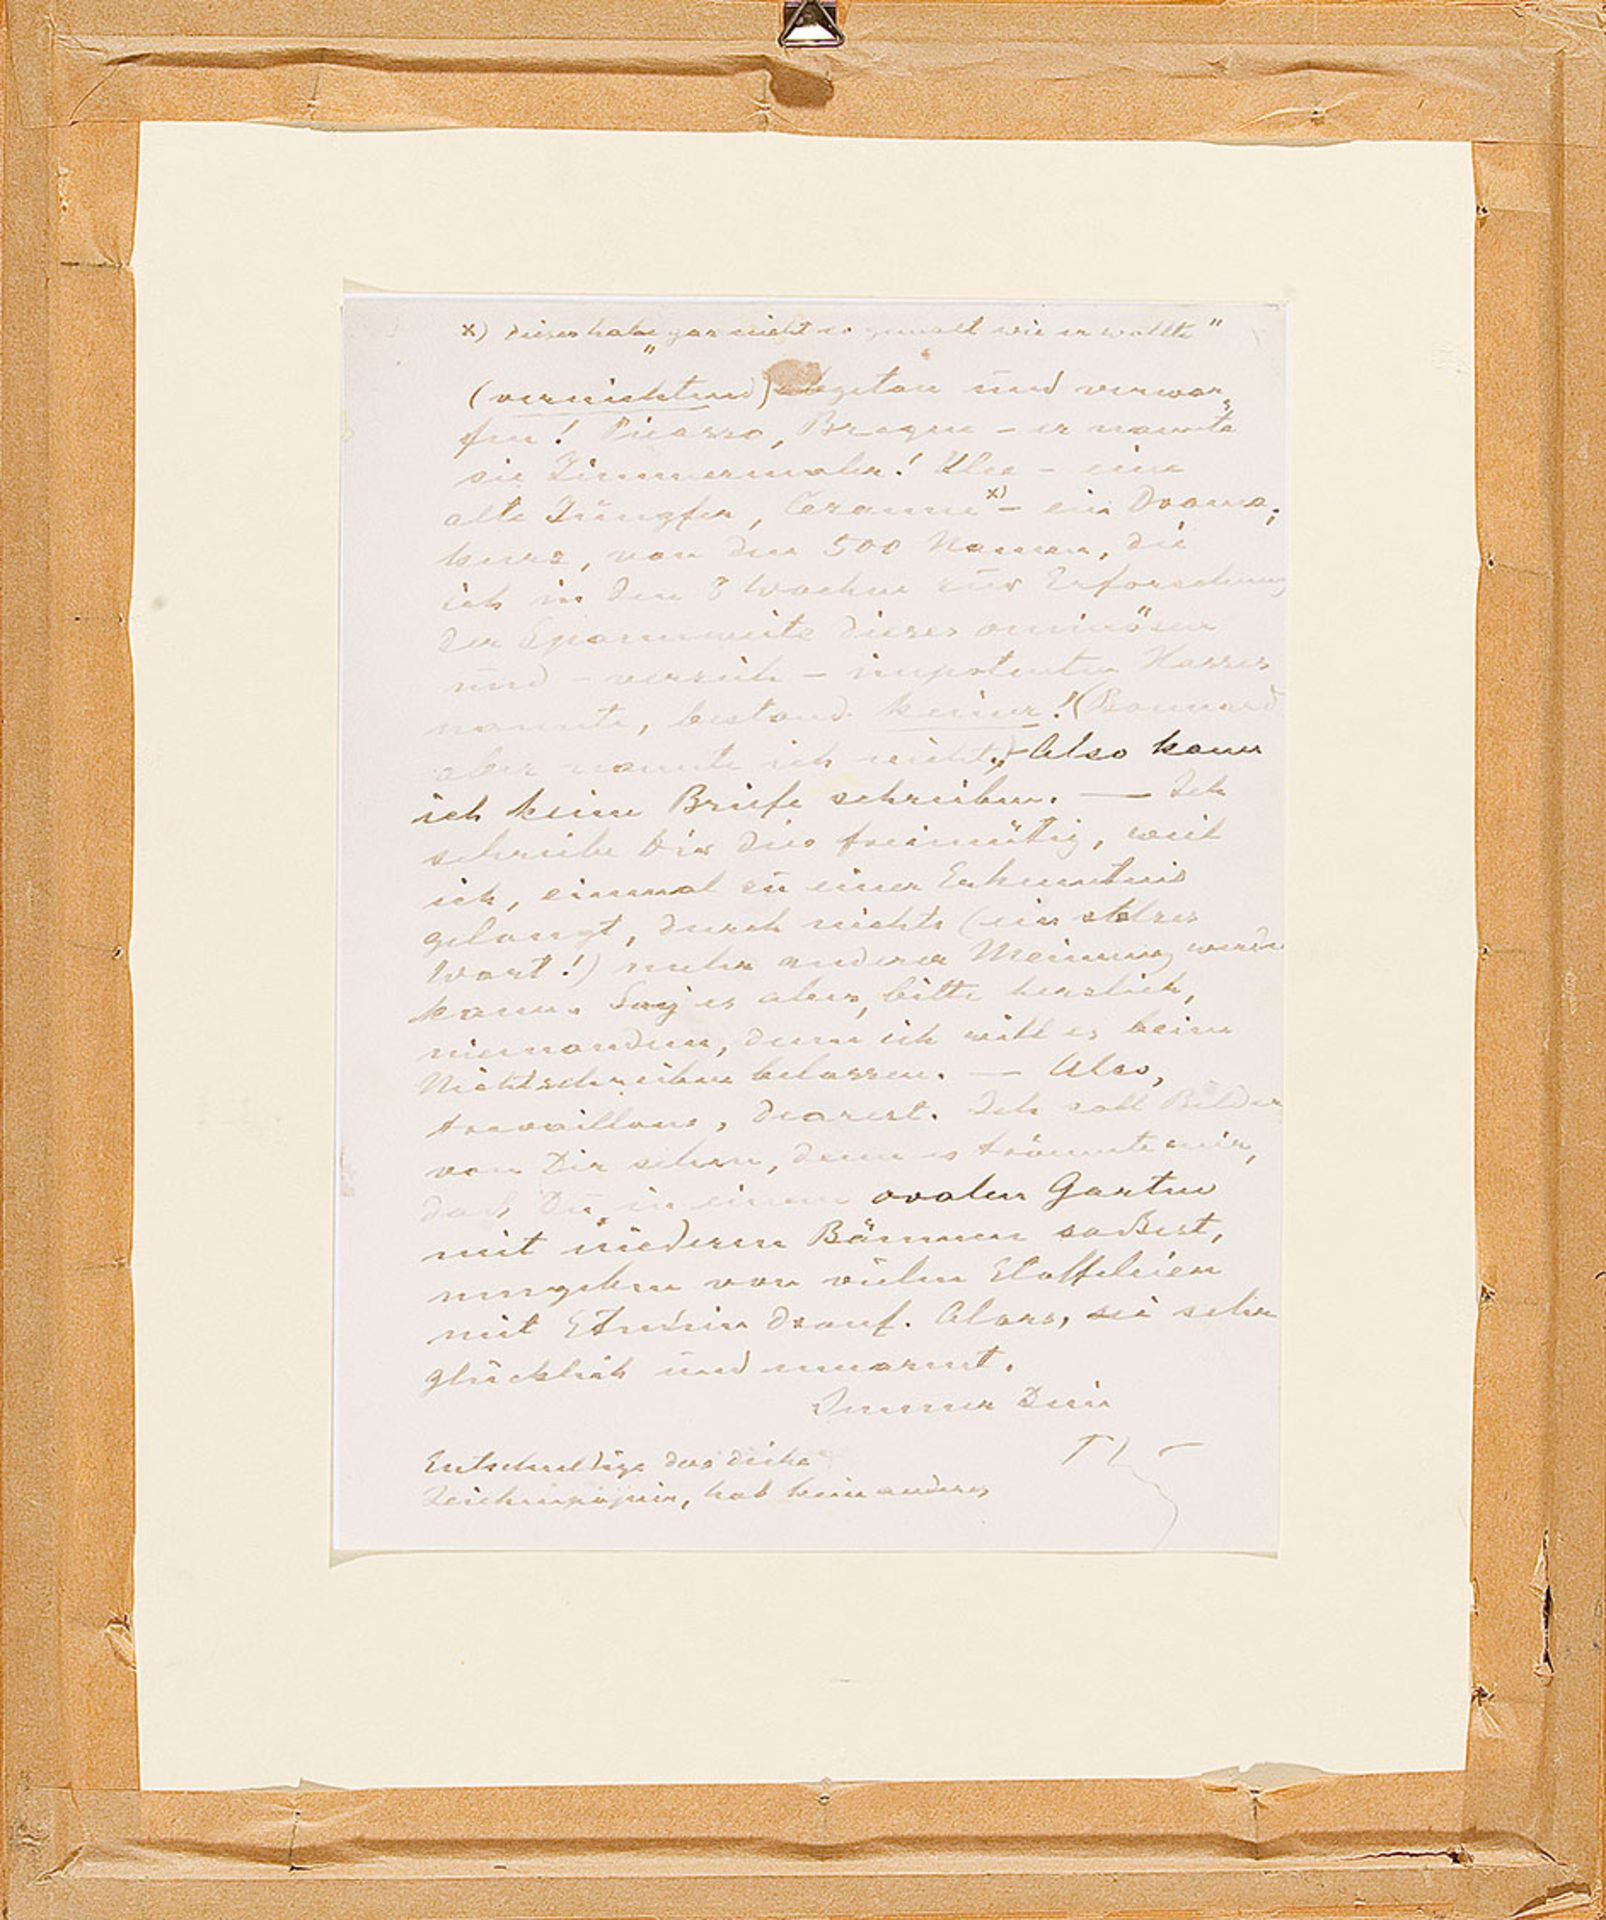 x) Dieser habe „gar nicht so gemalt wie er wollte"
(vernichtend) abgetan und verwor-
fen! Picasso, Braque – er nannte
sie Zimmermaler! Klee – eine
alte Jungfer, Cezanne x) – ein Drama;
kurz, von den 500 Namen, die
ich in den 8 Wochen zur Erforschung
der Spannweite dieses ominösen
und – verzeih – impotenten Hasses
nannte, bestand keiner! (Bonnard
aber nannte ich nicht.) Also kann
ich keine Briefe schreiben. — Ich
schreibe Dir dies freimütig, weil
ich, einmal zu einer Erkenntnis
gelangt, durch nichts (ein stolzes
Wort!) mehr anderer Meinung werden
kann. Sag es aber, bitte herzlich,
niemandem, denn ich will es beim
Nichtschreiben belassen. — Also,
travaillons, dearest. Ich soll Bilder
von Dir sehen, denn es träumte mir,
daß Du in einem ovalen Garten
mit niedern Bäumen saßest,
umgeben von vielen Staffeleien
mit Etüden drauf. Alors, sei sehr
glücklich und umarmt.
Immer Dein
Entschuldige das dicke
Zeichenpapier, hab kein anderes